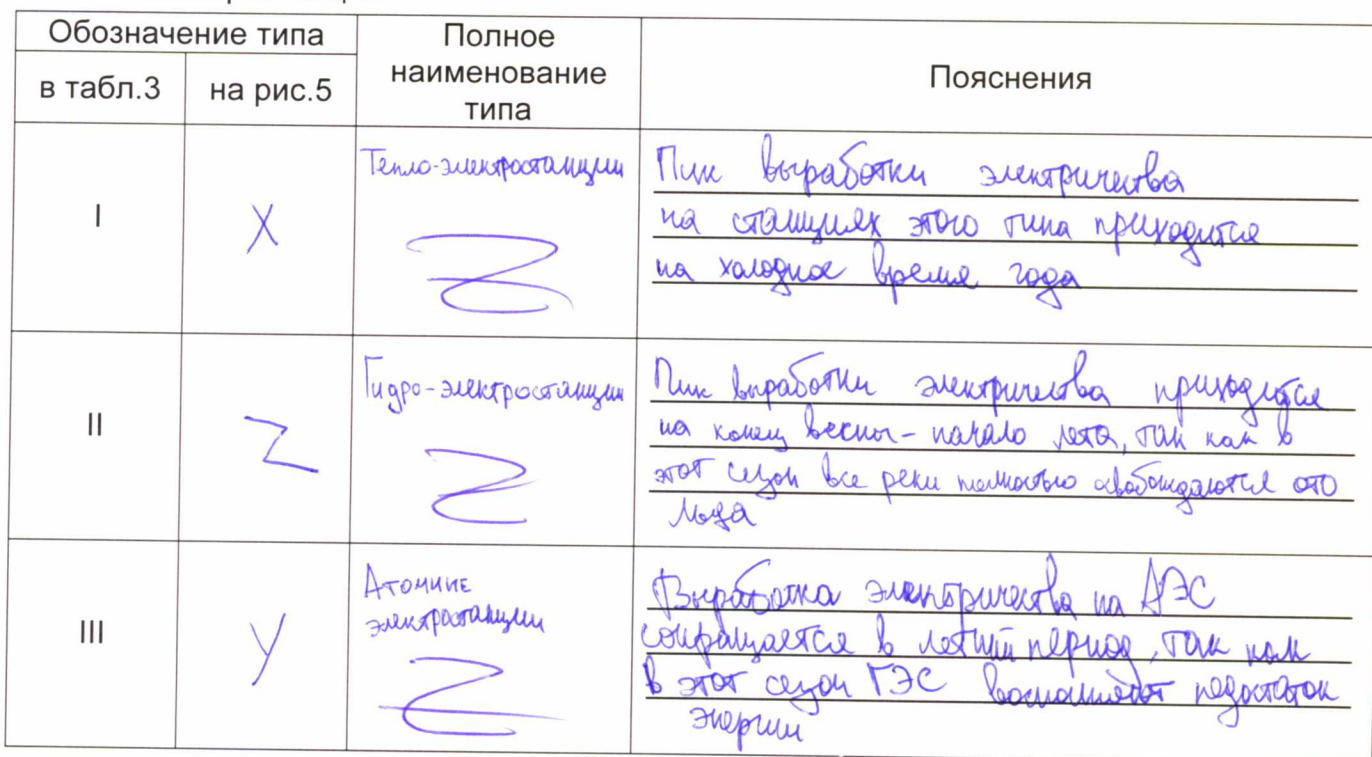 Обозначение типа
Полное наименование типа
Пояснения
в табл.3
на рис.5
I
X
Тепло-электростанции
Пик выработки электричества
на станциях этого типа приходится
на холодное время года
II
Z
Гидро-электростанции
Пик выработки электричества приходится
на конец весны - начало лета, так как в
этот сезон все реки полностью освобождаются ото
льда
III
Y
Атомные
электростанции
Выработка электричества на АЭС
сокращается в летний период, так как
в этот сезон ГЭС восполняют недостаток
энергии